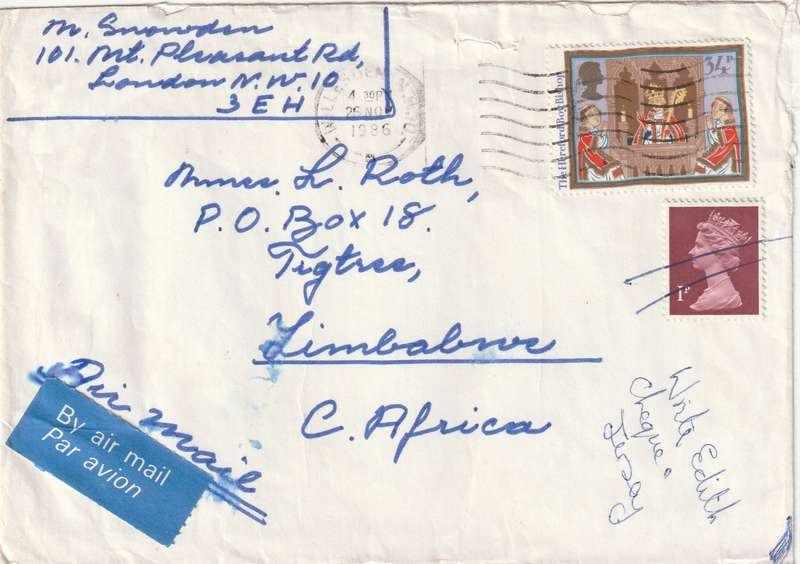 M. Snowden
101. Mt. Pleasant Rd,
London N.W.10
3 E H
4 30PM
26 NO
1986
34P
The Hereford Boy Bishop
L. Roth,
P.O. Box 18.
Tigtree,
Zimbabwe
C. Africa
1P
Air Mail
By air mail
Par avion
Write Edith
Cheque.
Jersey